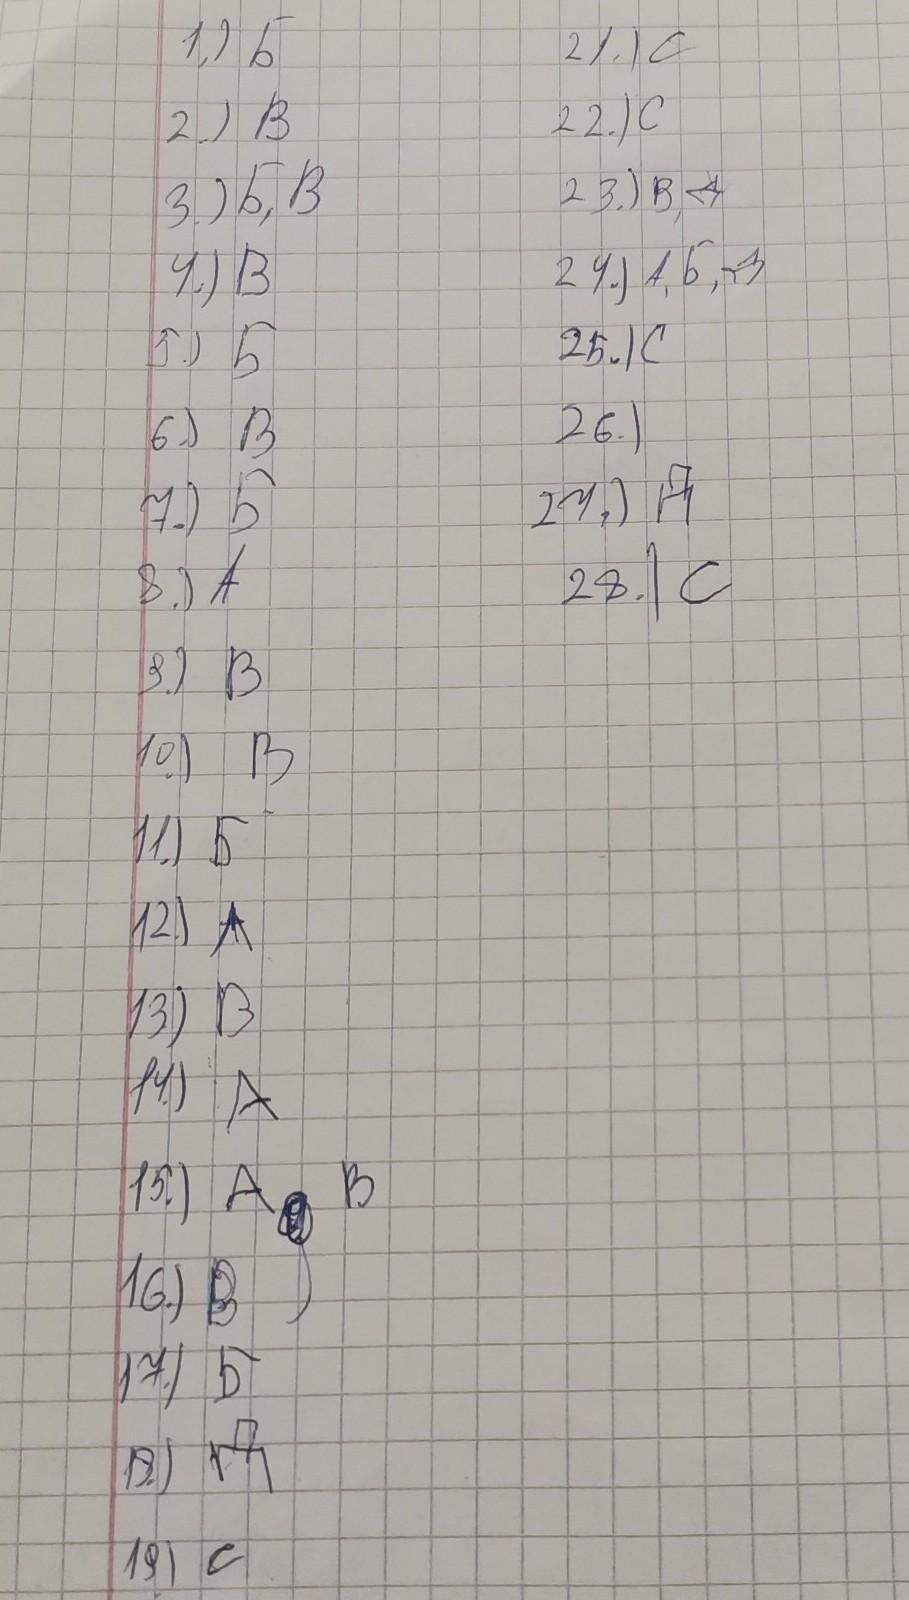 1.) Б
2.) В
3.) Б, В
4.) В
5.) Б
6.) В
7.) Б
8.) А
9.) В
10.) В
11.) Б
12.) А
13) В
14.) А
15.) А, В
16.) В
17.) Б
18.) Д
19) С
21.) С
22.) С
23.) В, Д
24.) А, Б, Д
25.) С
26.)
27.) Д
28.) С